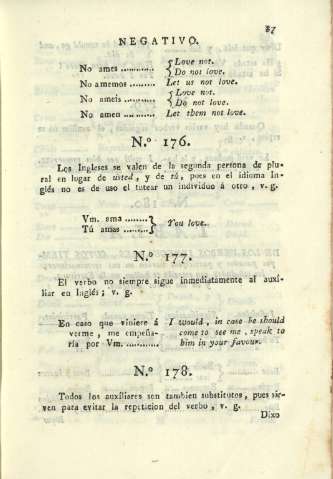 87
NEGATIVO.
No ames ........... { Love not.
Do not love.
No amemos ......... Let us not love.
No ameis ........... { Love not.
Do not love.
No amen ........... Let them not love.
N.º 176.
Los Ingleses se valen de la segunda persona de plu-
ral en lugar de usted, y de tú, pues en el idioma In-
glés no es de uso el tutear un individuo á otro, v. g.
Vm. ama ........ } You love.
Tú amas ........
N.º 177.
El verbo no siempre sigue inmediatamente al auxi-
liar en Inglés; v. g.
En caso que viniere á I would, in case he should
verme, me empeña- come to see me, speak to
ria por Vm. ............ him in your favour.
N.º 178.
Todos los auxiliares son tambien substitutos, pues sir-
ven para evitar la repeticion del verbo, v. g.
Dixo